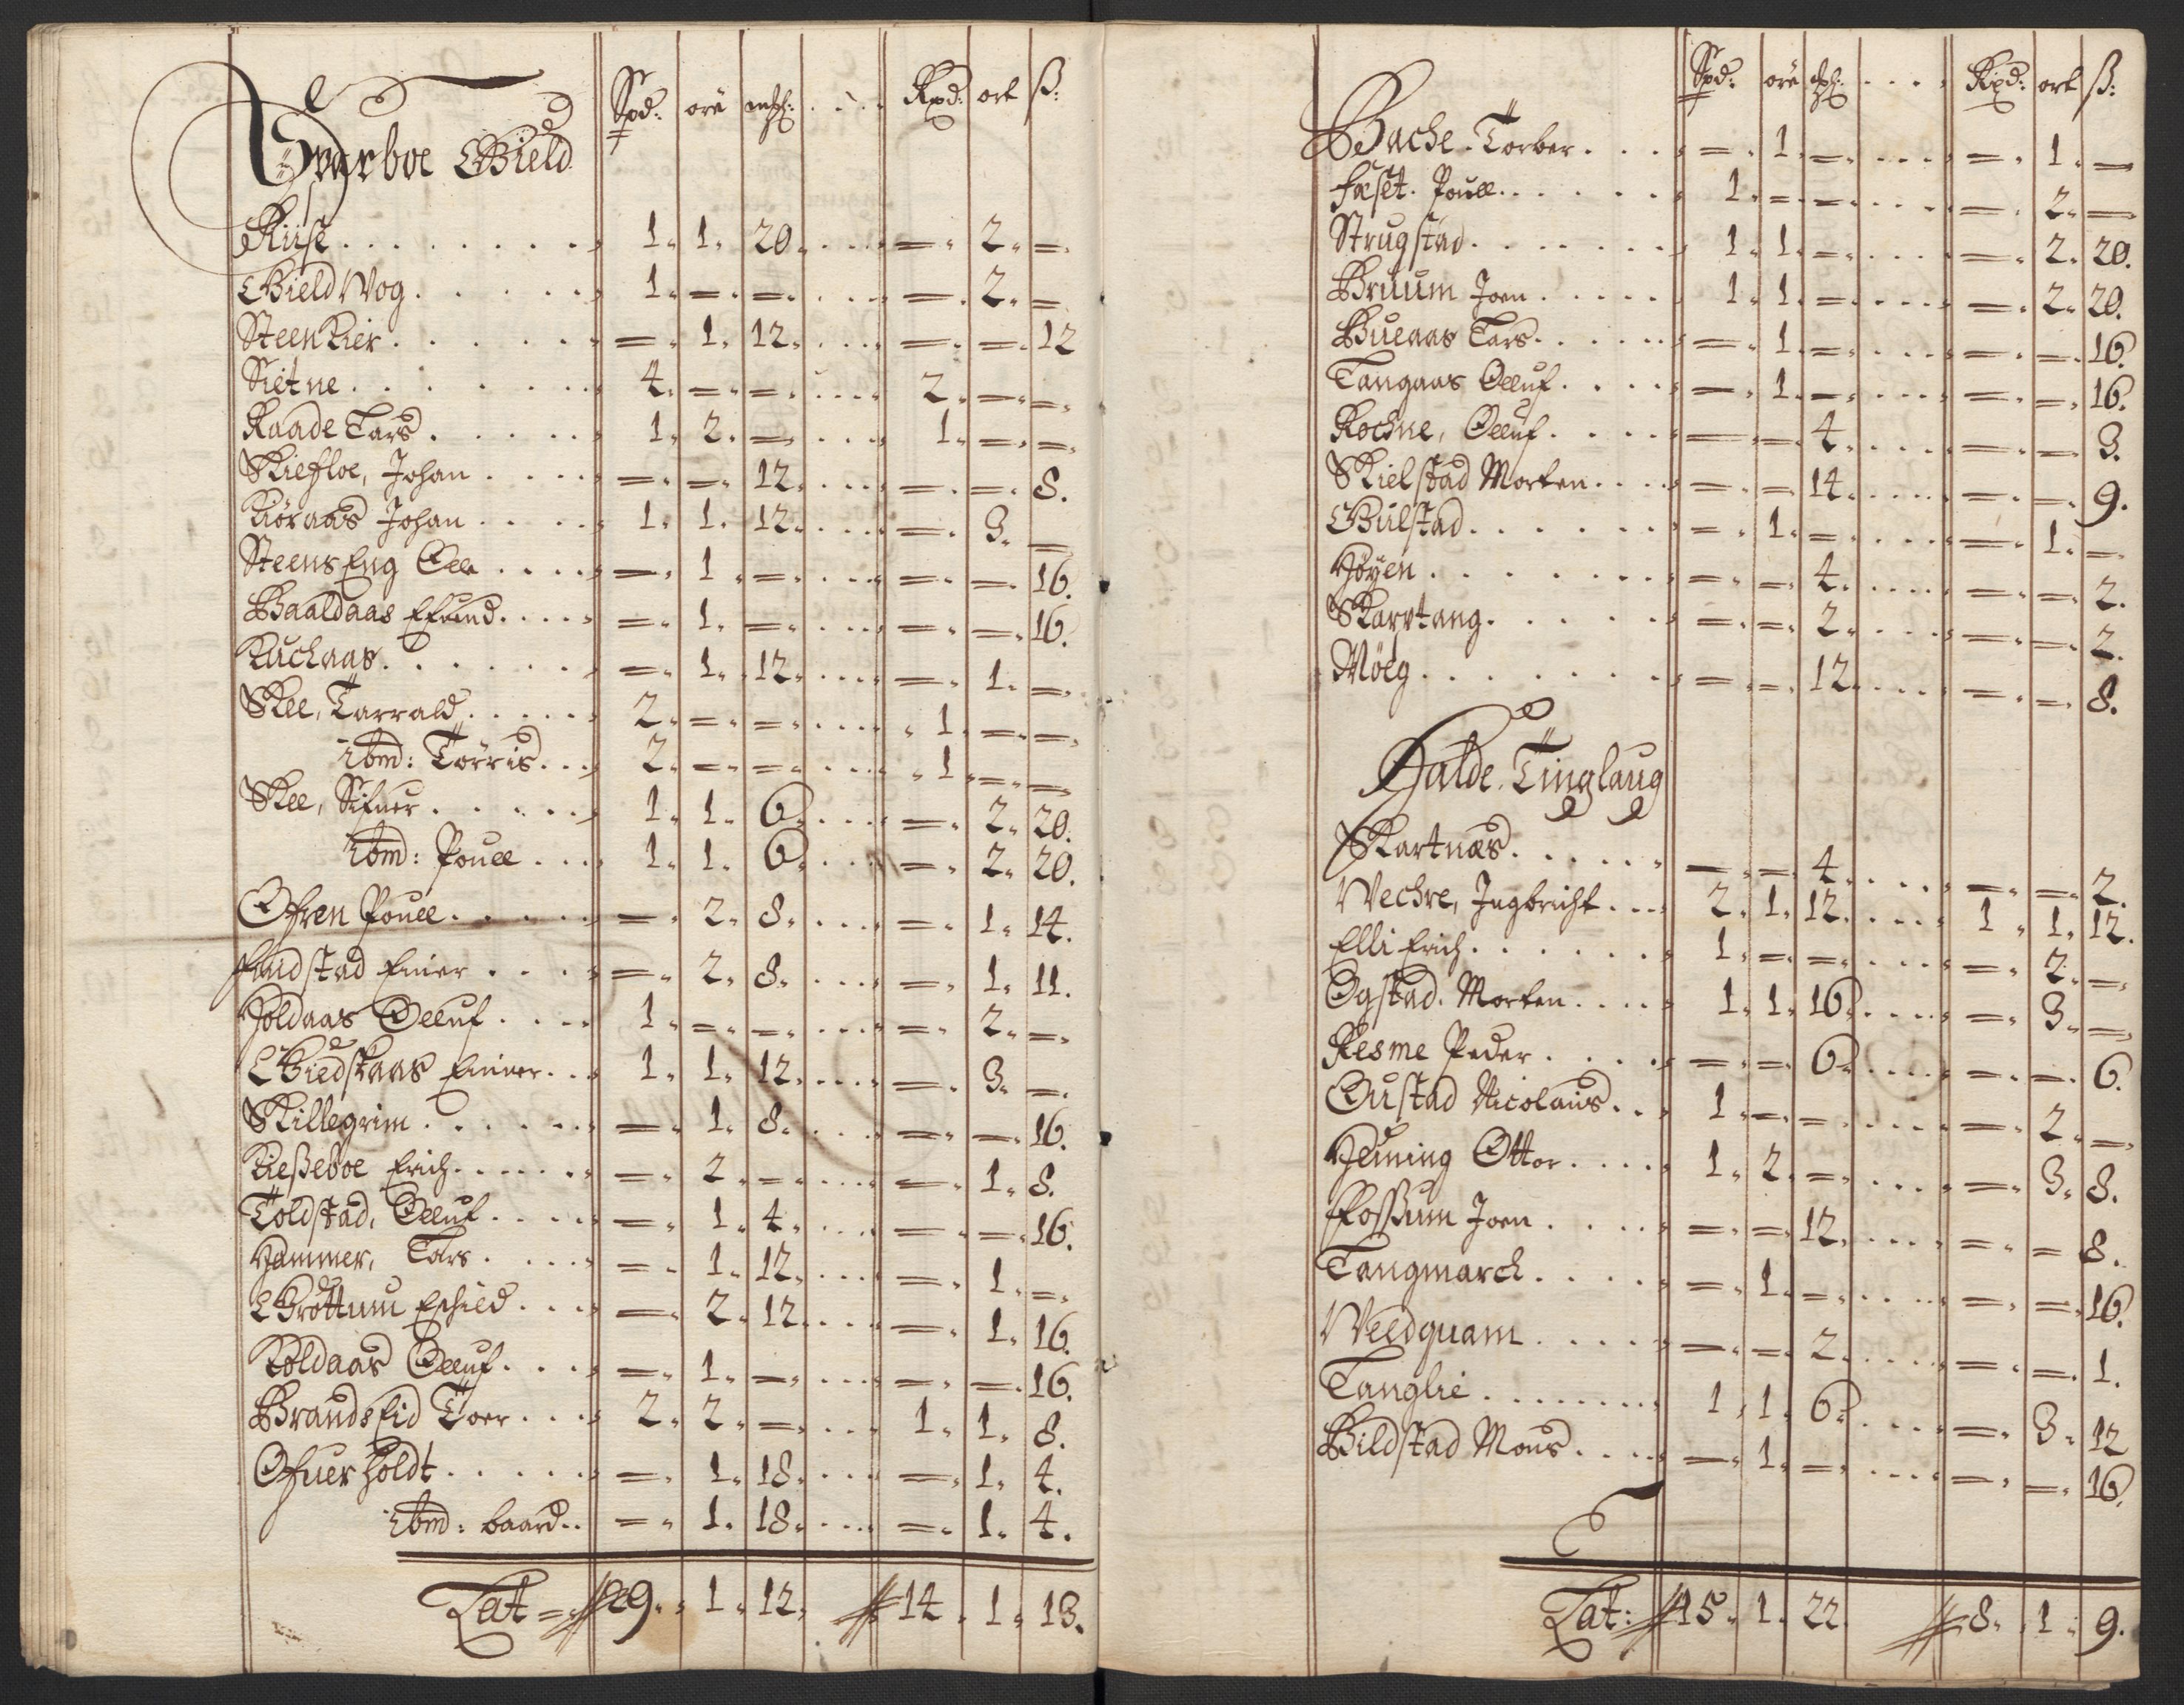 Spd: öre mhl: . . . Rxd: ort ß:
Sparboe Gield
Riise . . . 1. 1. 20. . . . =. 2. =.
Gield Wog . . . 1. =. =. . . . =. 2. =
Steenkier . . . =. 1. 12. . . . =. =. 12
Sietne . . . 4. =. =. . . . 2. =. =.
Raade Lars . . . 1. 2. =. . . . 1. =. =.
Skiefloe, Johan . . . =. =. 12. . . . =. =. 8.
Kiöraas Johan . . . 1. 1. 12. . . . =. 3. =
Steens Eng Ole . . . =. 1. =. . . . =. =. 16.
Baaldaas . . . =. 1. =. . . . =. =. 16.
Kuckaas . . . =. 1. 12. . . . =. 1. =.
Skee, Tarrald . . . 2. =. =. . . . 1. =. =.
ibm: Törris . . . 2. =. =. . . . 1. =. =.
Skee, Sifuer . . . 1. 1. 6. . . . =. 2. 20.
ibm: Pouel . . . 1. 1. 6. . . . =. 2. 20.
Ofren Pouel . . . =. 2. 8. . . . =. 1. 14.
Findstad Einer . . . =. 2. 8. . . . =. 1. 11.
Holdaas Oeluf . . . 1. =. =. . . . =. 2. =.
Giedstaas Einer . . . 1. 1. 12. . . . =. 3. =.
Skillegrim . . . =. 1. 8. . . . =. =. 16.
Kießeboe Erich . . . =. 2. =. . . . =. 1. 8.
Toldstad, Oeluf . . . =. 1. 4. . . . =. =. 16.
Hammer, Lars . . . =. 1. 12. . . . =. 1. =.
Grottum Eskild . . . =. 2. 12. . . . =. 1. 16.
Koldaas Oeluf . . . =. 1. =. . . . =. =. 16.
Brandseid Toer . . . 2. 2. =. . . . 1. 1. 8.
Ofuer Holdt . . . =. 1. 18. . . . =. 1. 4.
ibm: baard . . =. 1. 18. . . . =. 1. 4.
Lat = 29. 1. 12. 14. 1. 13.
Spd: öre mhl: . . . Rixd: ort ß:
Bache. Torber . . . =. 1. =. . . . =. 1. =
Faset. Pouel . . . 1. =. =. . . . =. 2. =
Strugstad . . . 1. 1. =. . . . =. 2. 20.
Bruum Joen . . . 1. 1. =. . . . =. 2. 20.
Bueaas Lars . . . =. 1. =. . . . =. =. 16.
Langaas Oeluf . . . =. 1. =. . . . =. =. 16.
Rochne, Oeluf . . . =. =. 4. . . . =. =. 3.
Skielstad Morten . . . =. =. 14. . . . =. =. 9.
Gulstad . . . =. 1. =. . . . =. 1. =.
Höyen . . . =. =. 4. . . . =. =. 2.
Skarvtang . . . =. =. 2. . . . =. =. 2.
Möeg . . . =. =. 12. . . . =. =. 8.
Halde. Tinglaug
Skartnæs . . . =. =. 4. . . . =. =. 2.
Wechre, Ingbricht . . . 2. 1. 12. . . . 1. 1. 12.
Elli Erich . . . 1. =. =. . . . =. 2. =.
Ogstad. Morten . . . 1. 1. 16. . . . =. 3. =.
Resme Peder . . . =. =. 6. . . . =. =. 6.
Oustad Nicolaus . . . 1. =. =. . . . =. 2. =.
Heining Ottor . . . 1. 2. =. . . . =. 3. 8.
Foßum Joen . . . =. =. 12. . . . =. = 8.
Langmarck . . . =. 1. =. . . . =. =. 16.
Weedquam . . . =. =. 2. . . . =. =. 1.
Langlie . . . 1. 1. 6. . . . =. 3. 12
Bildstad Mons . . . =. 1. =. . . . =. =. 16.
Lat: 15. 1. 22. 8. 1. 9.